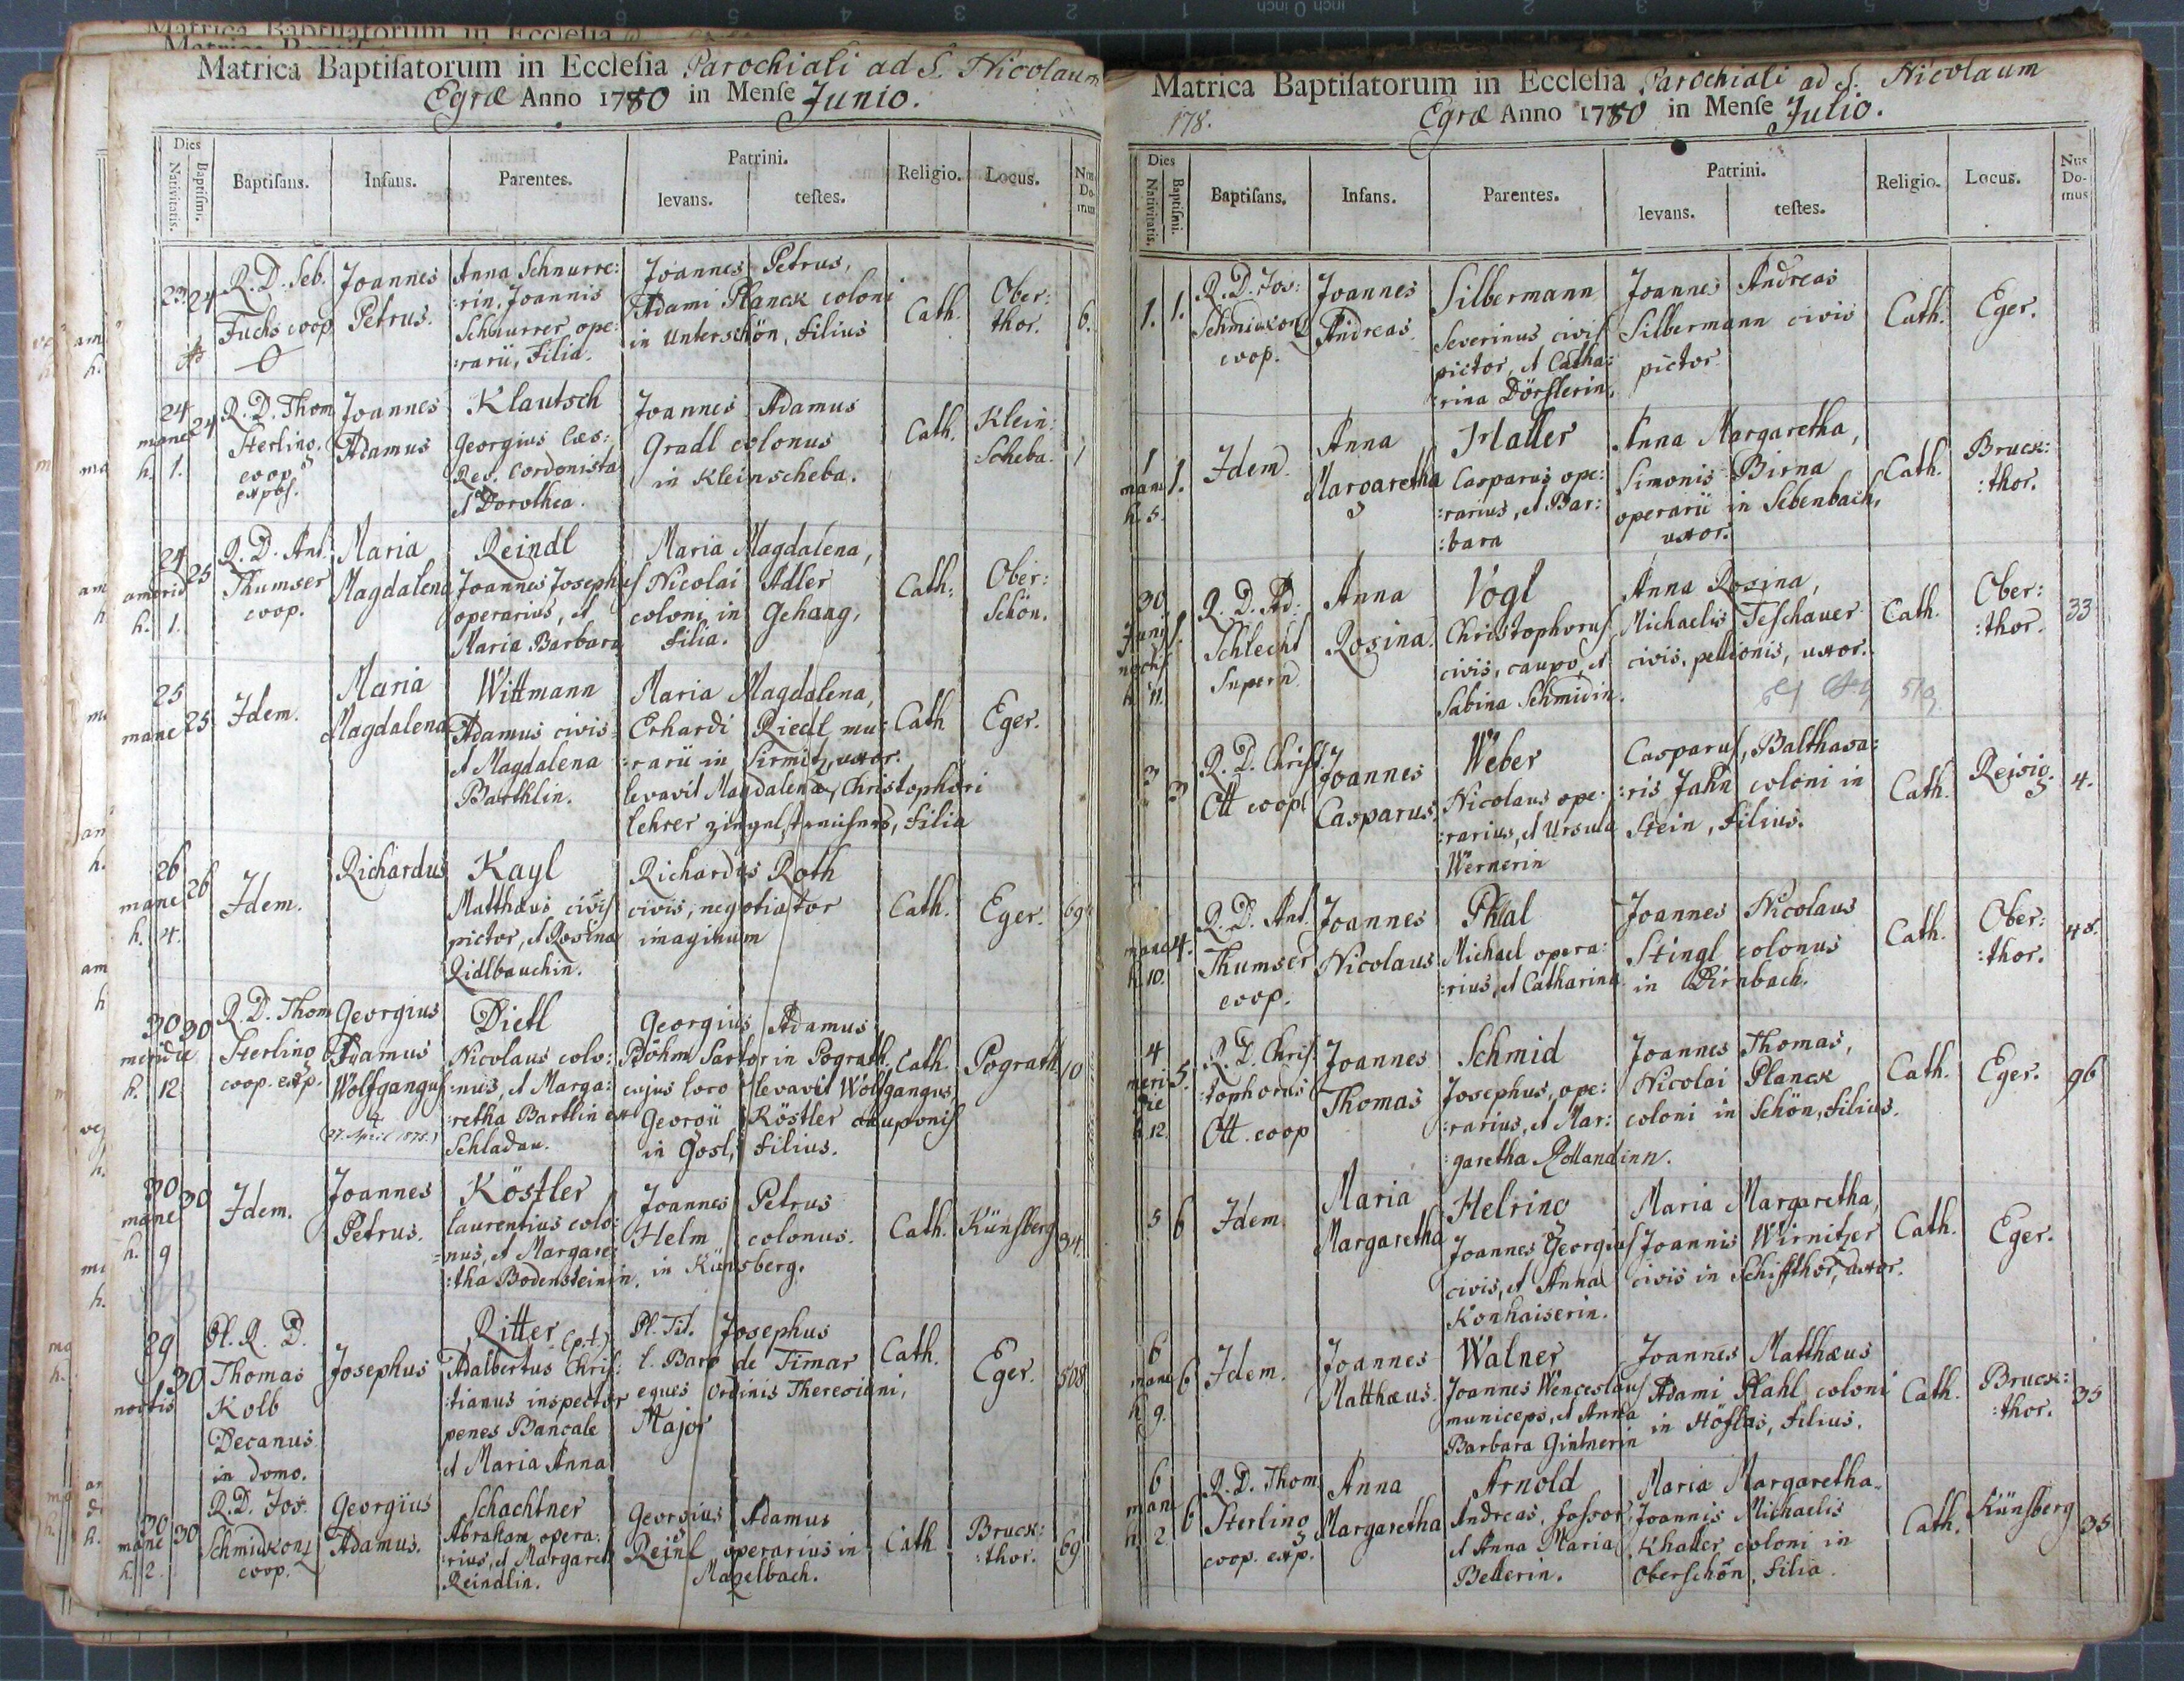 Matrica Baptisatorum in Ecclesia Parochiali ad S. Nicolaum
Egræ Anno 1780 in Mense Junio.
Dies
Nativitatis.
Baptismi.
Baptisans.
Infans.
Parentes.
Patrini.
levans.
testes.
Religio.
Locus.
Nus
Do-
mus
23. 24
R. D. Seb.
Fuchs coop
Joannes
Petrus.
Anna Schnurre:
:rin, Joannis
Schnurrer, ope:
:rarii, Filia.
Joannes Petrus,
Adami Planck coloni
in Unterschön, Filius
Cath.
Ober:
thor.
6.
24
mane 24
h. 1.
R. D. Thom
Sterling.
coop.
expos.
Joannes
Adamus
Klautsch
Georgius Cæs:
Reg. Cordonista
et Dorothea.
Joannes Adamus
Gradl colonus
in Kleinscheba.
Cath.
Klein:
Scheba.
1
24
25
h. 1.
R. D. Ant.
Thumser
coop.
Maria
Magdalena
Reindl
Joannes Josephus
operarius, et
Maria Barbara
Maria Magdalena,
Nicolai Adler
coloni in Gehaag,
Filia.
Cath.
Ober:
Schön.
25
mane 25
Idem.
Maria
Magdalena
Wittmann
Adamus civis
et Magdalena
Barthlin.
Maria Magdalena,
Erhardi Riedl mu
:rarii in Sirmitz, uxor.
levavit Magdalena, Christophori
Lehrer
Filia
Cath
Eger.
26
mane 26
h. 4.
Idem.
Richardus
Kayl
Matthæus civis
pictor, et Rosina
Ridlbauchin.
Richardus Roth
civis, negotiator
imaginum
Cath.
Eger.
69
30 30
meridie
h. 12
R. D. Thom
Sterling
coop. exp.
Georgius
Adamus
Wolfgangus
Dietl
Nicolaus colo:
:nus, et Marga:
:retha Bartlin ex
Schladau.
Georgius Adamus
Böhm Sartor in Pograth
cujus loco levavit Wolfgangus,
Georgii Köstler cauponis
in Gosl, Filius.
Cath
Pograth
10
30 30
mane
h. 9
Idem.
Joannes
Petrus.
Köstler
Laurentius colo:
=nus, et Margare:
:tha Bodensteinin.
Joannes Petrus
Helm colonus.
in Künsberg.
Cath.
Künsberg
34.
29
30
noctis
Pl. R. D.
Thomas
Kolb
Decanus
in domo.
Josephus
Ritter (p.t.)
Adalbertus Chris:
:tianus inspector
penes Bancale
et Maria Anna
Pl. Tit. Josephus
l. Baro de Timar
eques Ordinis Theresiani,
Major
Cath.
Eger.
508
30
mane 30
h. 2.
R. D. Jos.
Schmidkonz
coop.
Georgius
Adamus.
Schachtner
Abraham, opera:
:rius, et Margareth
Reindlin.
Georgius Adamus
Reinl operarius in
Magelbach.
Cath
Bruck:
:thor.
69
Matrica Baptisatorum in Ecclesia Parochiali ad S. Nicolaum
178.
Egræ Anno 1780 in Mense Julio.
Dies
Nativitatis.
Baptismi.
Baptisans.
Infans.
Parentes.
Patrini.
levans.
testes.
Religio.
Locus.
Nus
Do-
mus
1. 1.
R. D. Jos:
Schmidkonz
coop.
Joannes
Andreas
Silbermann
Severinus civis
pictor, et Catha:
:rina Dörflerin.
Joannes Andreas
Silbermann civis
pictor.
Cath.
Eger.
1
mane 1.
h. 5.
Idem.
Anna
Margaretha
Haller
Casparus ope:
:rarius, et Bar:
:bara
Anna Margaretha,
Simonis Birna
operarii in Sebenbach,
uxor.
Cath.
Bruck:
:thor.
30
Junij 1.
noctis
h. 11.
R. D. Ad:
Schlecht
Supern.
Anna
Rosina.
Vogl
Christophorus
civis, caupo, et
Sabina Schmidin.
Anna Rosina,
Michaelis Teschauer
civis, pellionis, uxor.
Cath.
Ober:
:thor.
33
3 3
R. D. Christ.
Ott coop
Joannes
Casparus
Weber
Nicolaus ope:
:rarius, et Ursula
Wernerin
Casparus, Balthasa:
:ris Jahn coloni in
Stein, Filius.
Cath.
Reisig.
4.
mane 4.
h. 10.
R. D. Ant.
Thumser
coop.
Joannes
Nicolaus
Phal
Michael opera:
:rius, et Catharina
Joannes Nicolaus
Stingl colonus
in Dirnbach.
Cath.
Ober:
:thor.
48.
4
meri 5.
die
h. 12.
R. D. Chris
:tophorus
Ott. coop
Joannes
Thomas
Schmid
Josephus, ope:
:rarius, et Mar:
:garetha Rollandinn.
Joannes Thomas,
Nicolai Planck
coloni in Schön, Filius.
Cath.
Eger.
96
5 6
Idem
Maria
Margaretha
Helring
Joannes Georgius
civis, et Anna
Konhaiserin.
Maria Margaretha,
Joannis Wirnitzer
civis in Schiffthor, uxor.
Cath.
Eger.
6
mane 6
h. 9.
Idem.
Joannes
Matthæus.
Walner
Joannes Wenceslaus
municeps, et Anna
Barbara Gintnerin
Joannes Matthæus
Adami Plahl coloni
in Höflas, Filius.
Cath.
Bruck:
:thor.
35
6
mane 6
h. 2.
R. D. Thom
Sterling
coop. exp.
Anna
Margaretha
Arnold
Andreas, fossor
et Anna Maria
Bellerin.
Maria Margaretha
Joannis Michaelis
Khaller coloni in
Oberschön, Filia.
Cath.
Künsberg
35